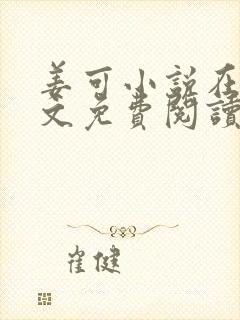 姜可小说在
文免費閱讀
崔健